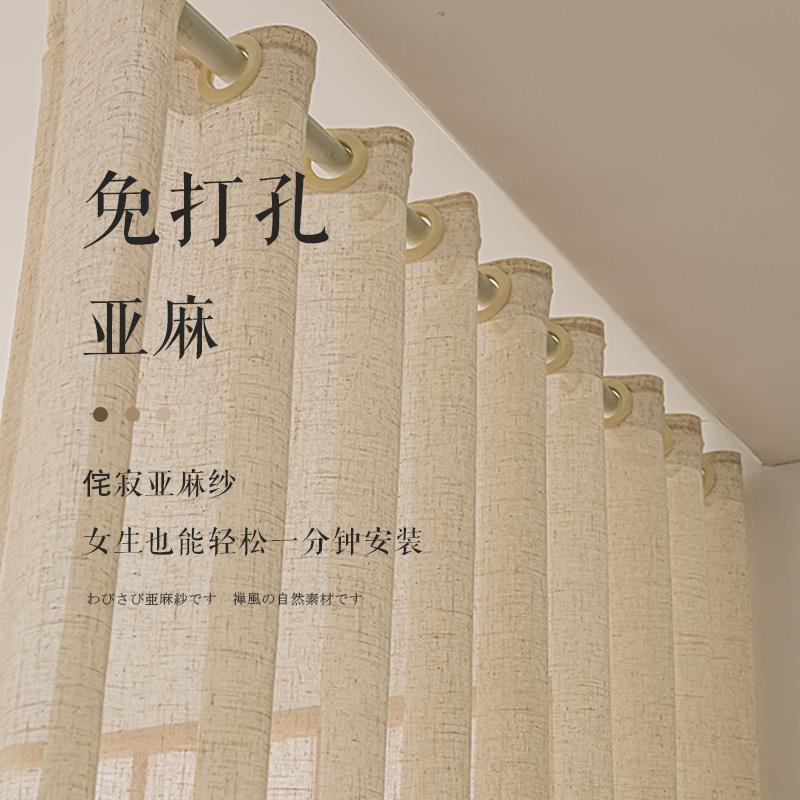 免打孔
亚麻
侘寂亚麻纱
女生也能轻松一分钟安装
わびさび亜麻紗です　禅風の自然素材です